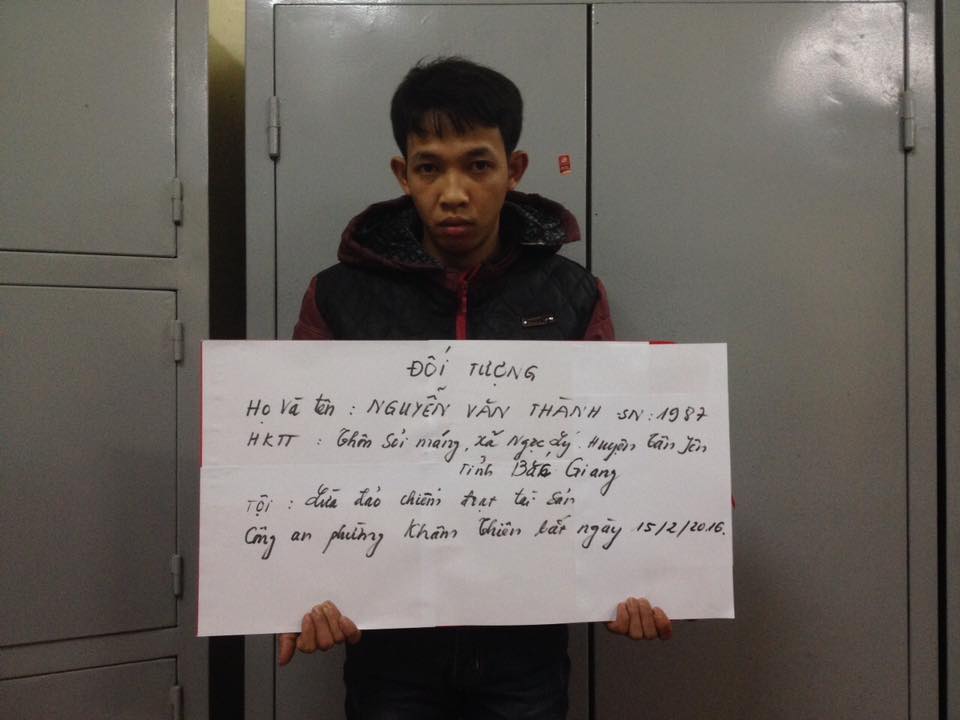 ĐỐI TƯỢNG
Họ và tên : NGUYỄN VĂN THÀNH SN : 1987
HKTT : Thôn Sỏi máng, xã Ngọc Lý Huyện Tân Yên
Tỉnh Bắc Giang
TỘI : Lừa đảo chiếm đoạt tài sản
Công an phường Khâm Thiên bắt ngày 15/2/2016.